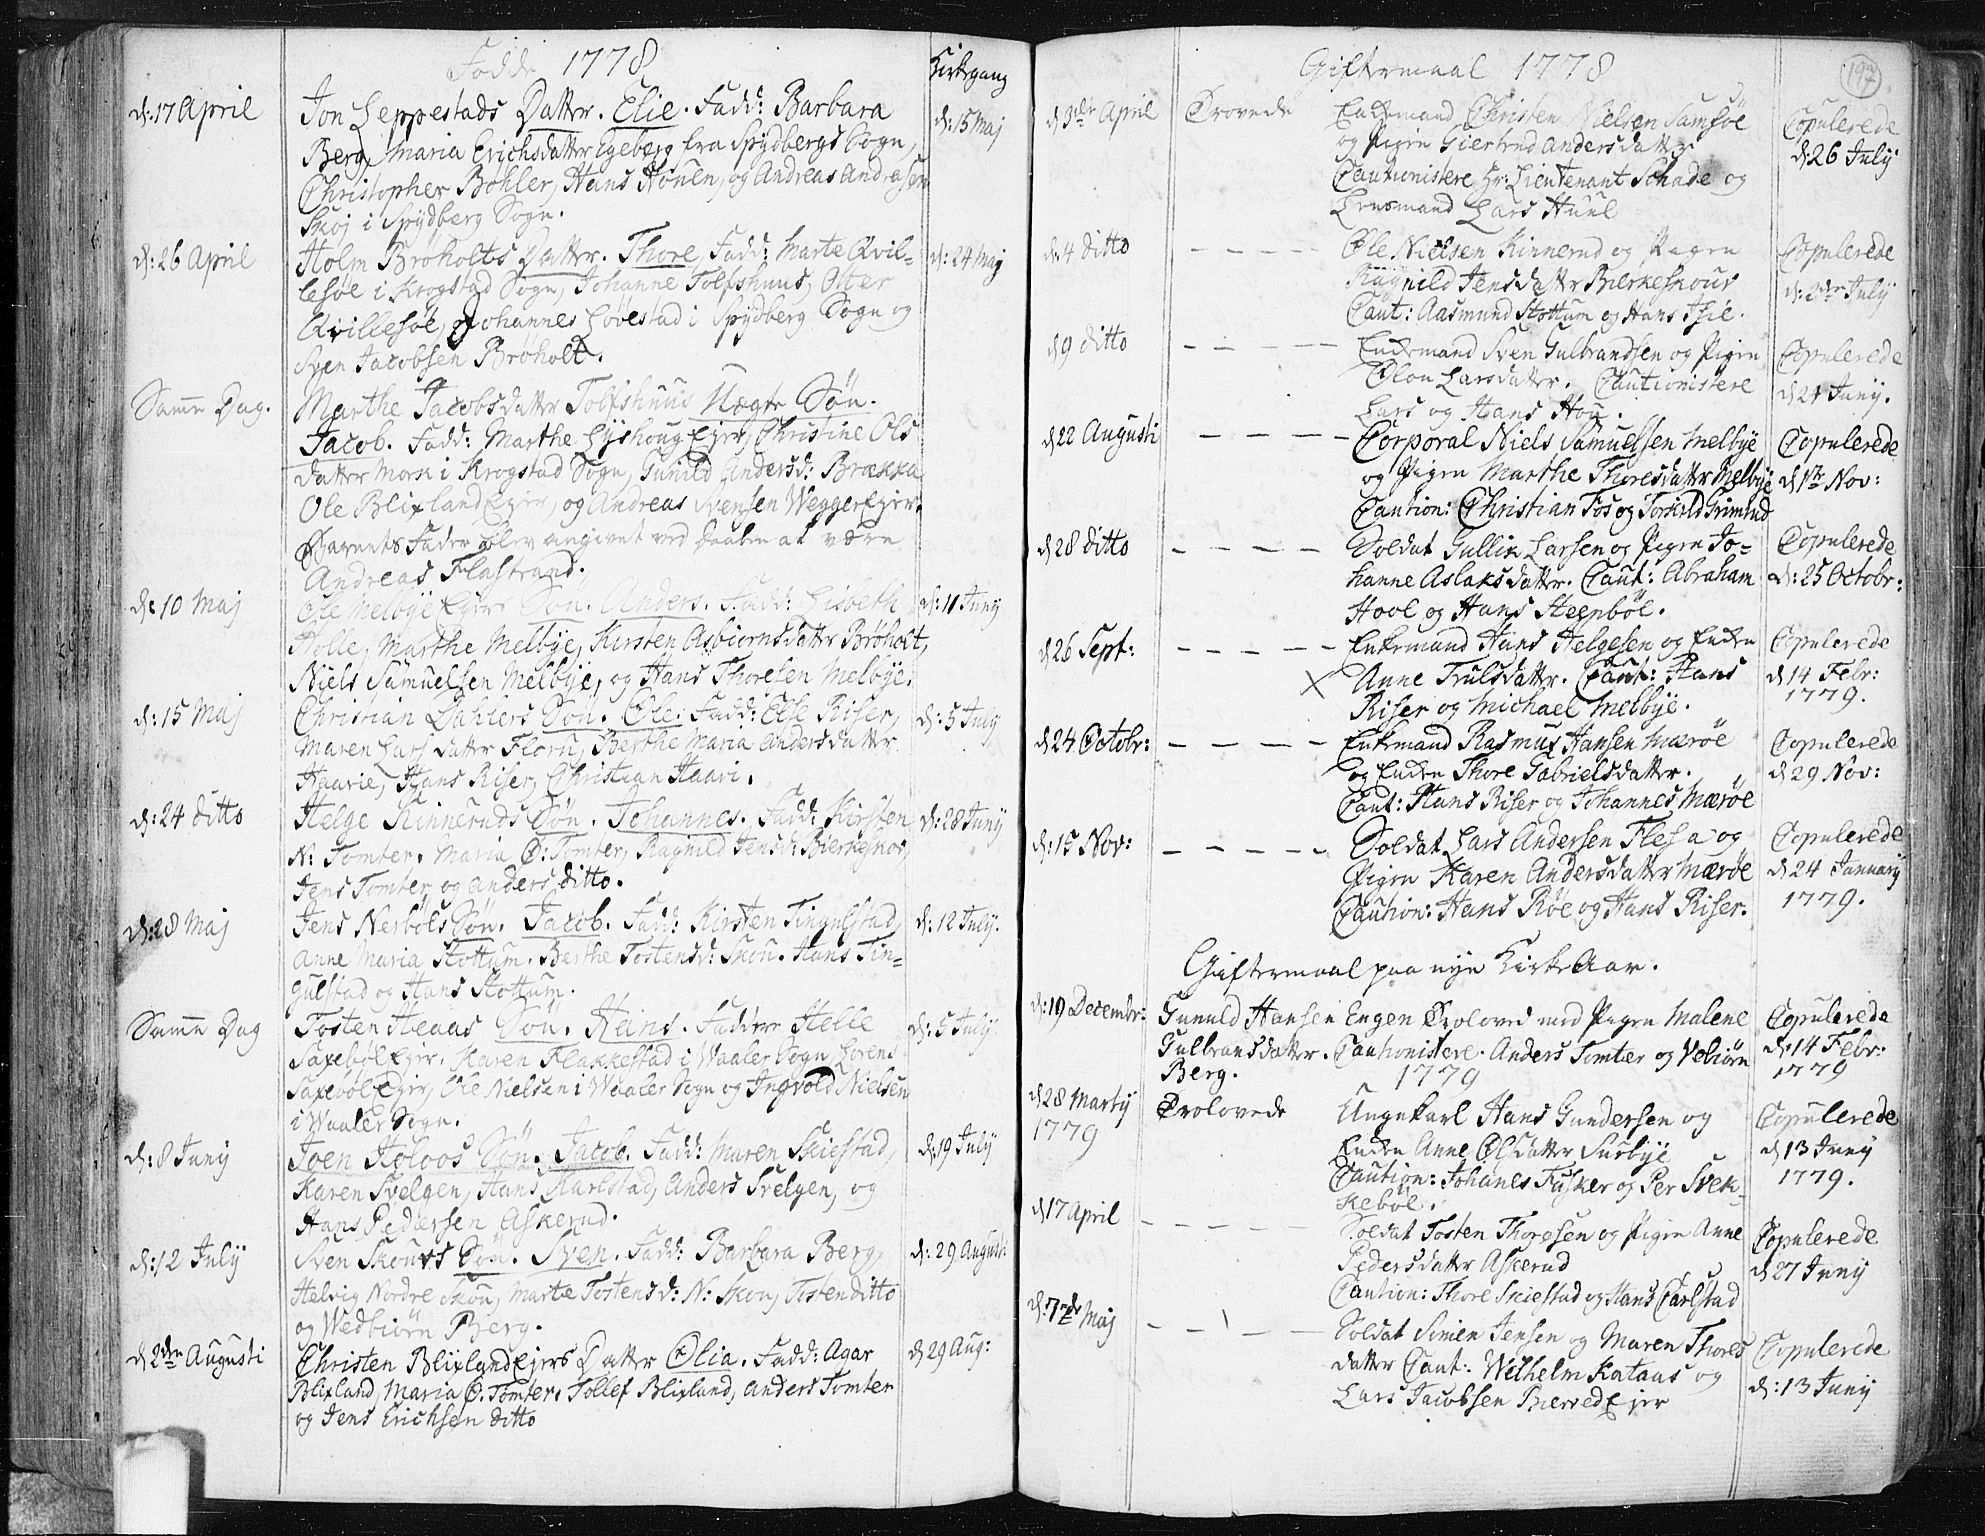 Fødde 1778
Kirkegang
d: 17 April
Jon Leppestads Datter. Elie. Fadd: Barbara
d: 15 Maj
Berg, Maria Erichsdatter Egeberg fra Spydbergs Sogn,
Christopher Bøhler, Hans Hønen, og Andreas Andersen
Skøj i Spydberg Sogn.
d: 26 April
Holm Brøholts Datter. Thore. Fadd: Marte Qvil=
d: 24 Maj
lesøe i Krogstad Sogn, Johanne Tolfshuus, Otter
Qvillesøe, Johannes Løvestad i Spydberg Sogn og
Sven Jacobsen Brøholt.
Samme Dag.
Marthe Jacobsdatter Tolfshuus Uægte Søn.
Jacob. Fadd: Marthe Lyshoug Ejer, Christine Ols
datter Mork i Krogstad Sogn, Gunild Andersd: Brække
Ole Blixland Ejer, og Andreas Svensen Wegger Ejer.
Barnets Fader blev angivet ved Daaben at være
Andreas Flastrand.
d: 10 Maj
Ole Melbye Ejers Søn. Anders. Fadd: Lisbeth
d: 11 Juny
Holle, Marthe Melbye, Kirsten Asbiørnsdatter Brøholt,
Niels Samuelsen Melbye, og Hans Thoresen Melbye.
d: 15 Maj
Christian Dahlers Søn. Ole. Fadd: Else Riser,
d: 5 July
Maren Larsdatter Floru, Berthe Maria Andersdatter
Haarie, Hans Riser, Christian Haavi.
d: 24 ditto
Helge Kinneruds Søn. Johannes. Fadd: Kirsten
d: 28 Juny
N: Tomter. Maria Ø: Tomter, Ragnild Jensd: Bierkeskov,
Jens Tomter og Anders ditto.
d: 28 Maj
Jens Nerbøls Søn. Jacob. Fadd: Kirsten Tingulstad,
d: 12 July.
Anne Maria Stottum. Berthe Tostensd: Skou. Hans Tin=
gulstad og Hans Stottum.
Samme Dag
Tosten Heaas Søn. Heins. Faddere Helle
d: 5 July
Saxebøl Ejer. Karen Flakkestad i Waaler Sogn, Lorens
Saxebøl Ejer, Ole Nielsen i Waaler Sogn og Ingvold Nielsen
i Waaler Sogn.
d: 8 Juny
Joen Holoos Søn. Jacob. Fadd: Maren Skiestad,
d: 19 July
Karen Svelgen, Hans Karlstad, Anders Svelgen, og
Hans Pedersen Askerud.
d: 12 July
Sven Skous Søn. Sven. Fadd: Barbara Berg,
d: 29 Augusti
Helvig Nordre Skou, Marte Tostensd: N: Skou, Tosten ditto
og Wedbiørn Berg.
d 2den Augusti
Christen Blixland Ejers Datter Olia. Fadd: Agar
d 29 Aug:
Blixland, Maria Ø. Tomter. Tollef Blixland, Anders Tomter
og Jens Erichsen ditto
Giftermaal 1778
197
d 3die April
Trovede
Enkemand Christen Nielsen Samsøe
Copulerede
og Pigen Giertrud Andersdatter
d: 26 July
Cautionistere Hr: Lieutenant Schade og
Lensmand Lars Huul
d: 4 ditto
Ole Nielsen Kinnerud og Pigen
Copulerede
Ragnild Jensdatter Bierkeskour
d: 2den July
Caut: Aasmund Stottum og Hans Isie.
d 9 ditto
Enkemand Sven Gulbrandsen og Pigen
Copulerede
Olou Larsdatter. Cautionistere
d 24 Juny.
Lars og Hans Hou.
d 22 Augusti
Corporal Niels Samuelsen Melbye
Copulerede
og Pigen Marthe Thoresdatter Melbye
d 1te Nov:
Caution: Christian Fos og Torkild Grimsrud
d 28 ditto
Soldat Gullik Larsen og Pigen Jo=
Copulerede
hanne Aslaksdatter. Caut: Abraham
d: 25 Octobr:
Hool og Hans Steenbøl.
d 26 Sept:
Enkemand Hans Helgesen og Enken
Copulerede
X Anne Trulsdatter. Caut: Hans
d 14 Febr:
Riser og Michael Melbye.
1779.
d 24 Octobr:
Enkemand Rasmus Hansen Mærøe
Copulerede
og Enken Thore Gabrielsdatter.
d 29 Nov:
Caut: Hans Riser og Johannes Mærøe
d: 1te Nov:
Soldat Lars Andersen Flesa og
Copulerede
Pigen Karen Andersdatter Mærøe
d 24 January
Caution: Hans Røe og Hans Riser.
1779.
Giftermaal paa nye Kirke Aar.
d: 19 Decembr:
Gunuld Hansen Engen Troloved med Pigen Malene
Copulerede
Gulbransdatter. Cautionistere. Anders Tomter og Vebiørn
d: 14 Febr:
Berg.
1779
1779
d 28 Marty
Trolovede
Ungekarl Hans Gundersen og
Copulerede
1779
Enken Anne Olsdatter Susbye
d 13 Juny
Caution: Johanes Fusker og Per Svek-
1779.
kebøl.
d 17 April
Soldat Tosten Thoresen og Pigen Anne
Copulerede
Pedersdatter Askerud
d 27 Juny
Caution: Thore Skiestad og Hans Carlstad
d: 7de Maj
Soldat Simen Jensen og Maren Thores
Copulerede
datter Caut: Wilhelm Kataas og
d: 13 Juny
Lars Jacobsen Ejer